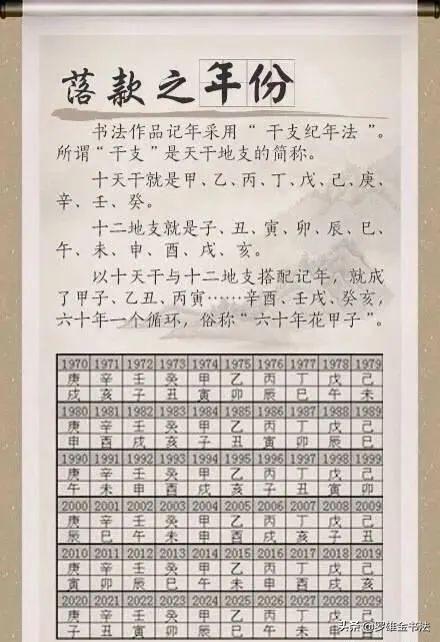 落款之年份
书法作品记年采用“干支纪年法”。
所谓“干支”是天干地支的简称。
十天干就是甲、乙、丙、丁、戊、己、庚、
辛、壬、癸。
十二地支就是子、丑、寅、卯、辰、巳、
午、未、申、酉、戌、亥。
以十天干与十二地支搭配记年，就成
了甲子、乙丑、丙寅……辛酉、壬戌、癸亥，
六十年一个循环，俗称“六十年花甲子”。
1970 1971 1972 1973 1974 1975 1976 1977 1978 1979
庚 辛 壬 癸 甲 乙 丙 丁 戊 己
戌 亥 子 丑 寅 卯 辰 巳 午 未
1980 1981 1982 1983 1984 1985 1986 1987 1988 1989
庚 辛 壬 癸 甲 乙 丙 丁 戊 己
申 酉 戌 亥 子 丑 寅 卯 辰 巳
1990 1991 1992 1993 1994 1995 1996 1997 1998 1999
庚 辛 壬 癸 甲 乙 丙 丁 戊 己
午 未 申 酉 戌 亥 子 丑 寅 卯
2000 2001 2002 2003 2004 2005 2006 2007 2008 2009
庚 辛 壬 癸 甲 乙 丙 丁 戊 己
辰 巳 午 未 申 酉 戌 亥 子 丑
2010 2011 2012 2013 2014 2015 2016 2017 2018 2019
庚 辛 壬 癸 甲 乙 丙 丁 戊 己
寅 卯 辰 巳 午 未 申 酉 戌 亥
2020 2021 2022 2023 2024 2025 2026 2027 2028 2029
庚 辛 壬 癸 甲 乙 丙 丁 戊 己
子 丑 寅 卯 辰 巳
头条 @罗雄金书法